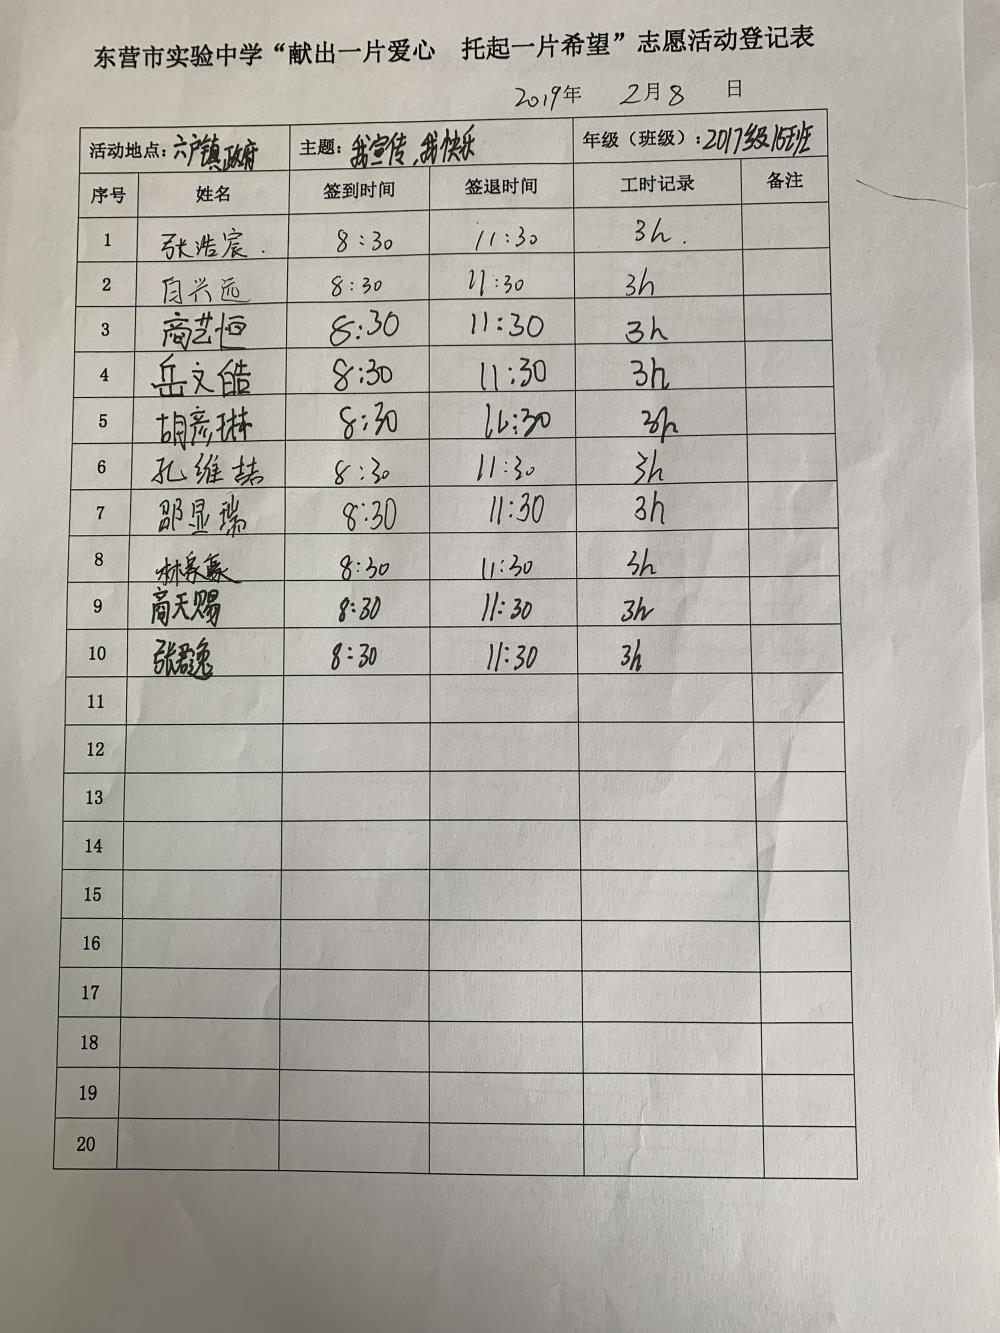 东营市实验中学“献出一片爱心 托起一片希望”志愿活动登记表
2019年 2月8 日
活动地点：六户镇政府 主题：我宣传，我快乐 年级（班级）：2017级15班
序号 姓名 签到时间 签退时间 工时记录 备注
1 张浩宸 8:30 11:30 3h.
2 8:30 11:30 3h
3 商艺恒 8:30 11:30 3h
4 岳文皓 8:30 11:30 3h
5 胡彦琳 8:30 11:30 3h
6 孔维喆 8:30 11:30 3h
7 邵显瑞 8:30 11:30 3h
8 8:30 11:30 3h
9 高天赐 8:30 11:30 3h
10 张君逸 8:30 11:30 3h
11
12
13
14
15
16
17
18
19
20